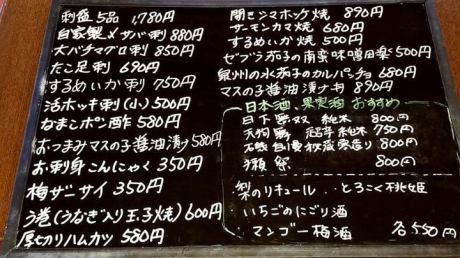 刺盛 5品 1,780円
自家製〆サバ刺 880円
大バチマグロ刺 850円
たこ足刺 690円
するめいか刺 750円
活ホッキ刺(小) 500円
なまこポン酢 580円
おつまみマスの子醤油漬け 580円
お刺身こんにゃく 350円
梅ザーサイ 350円
う巻(うなぎ入り玉子焼) 600円
厚切りハムカツ 580円
開きシマホッケ焼 890円
サーモンカマ焼 680円
するめいか焼 500円
ゼブラ茄子の南蛮味噌田楽 500円
泉州の水茄子のカルパッチョ 680円
マスの子醤油漬け丼 890円
日本酒、果実酒 おすすめ
日下無双 純米 800円
天狗舞 超辛 純米 750円
石鎚 自慢 秘蔵 800円
獺祭 800円
梨のリキュール とろこく桃姫
いちごのにごり酒
マンゴー梅酒 各550円